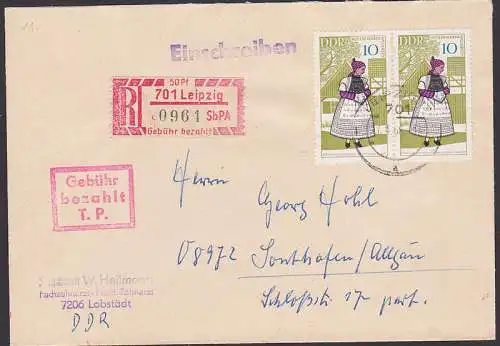 11.
Einschreiben
DDR
10
10
50 Pf
R
701 Leipzig
0961 SbPA
Gebühr bezahlt
701
Gebühr
bezahlt
T. P.
Herrn
Georg Hohl
D 8972 Sonthofen/Allgäu
Schloßstr. 17 part.
W. Heßmann
7206 Lobstädt
DDR